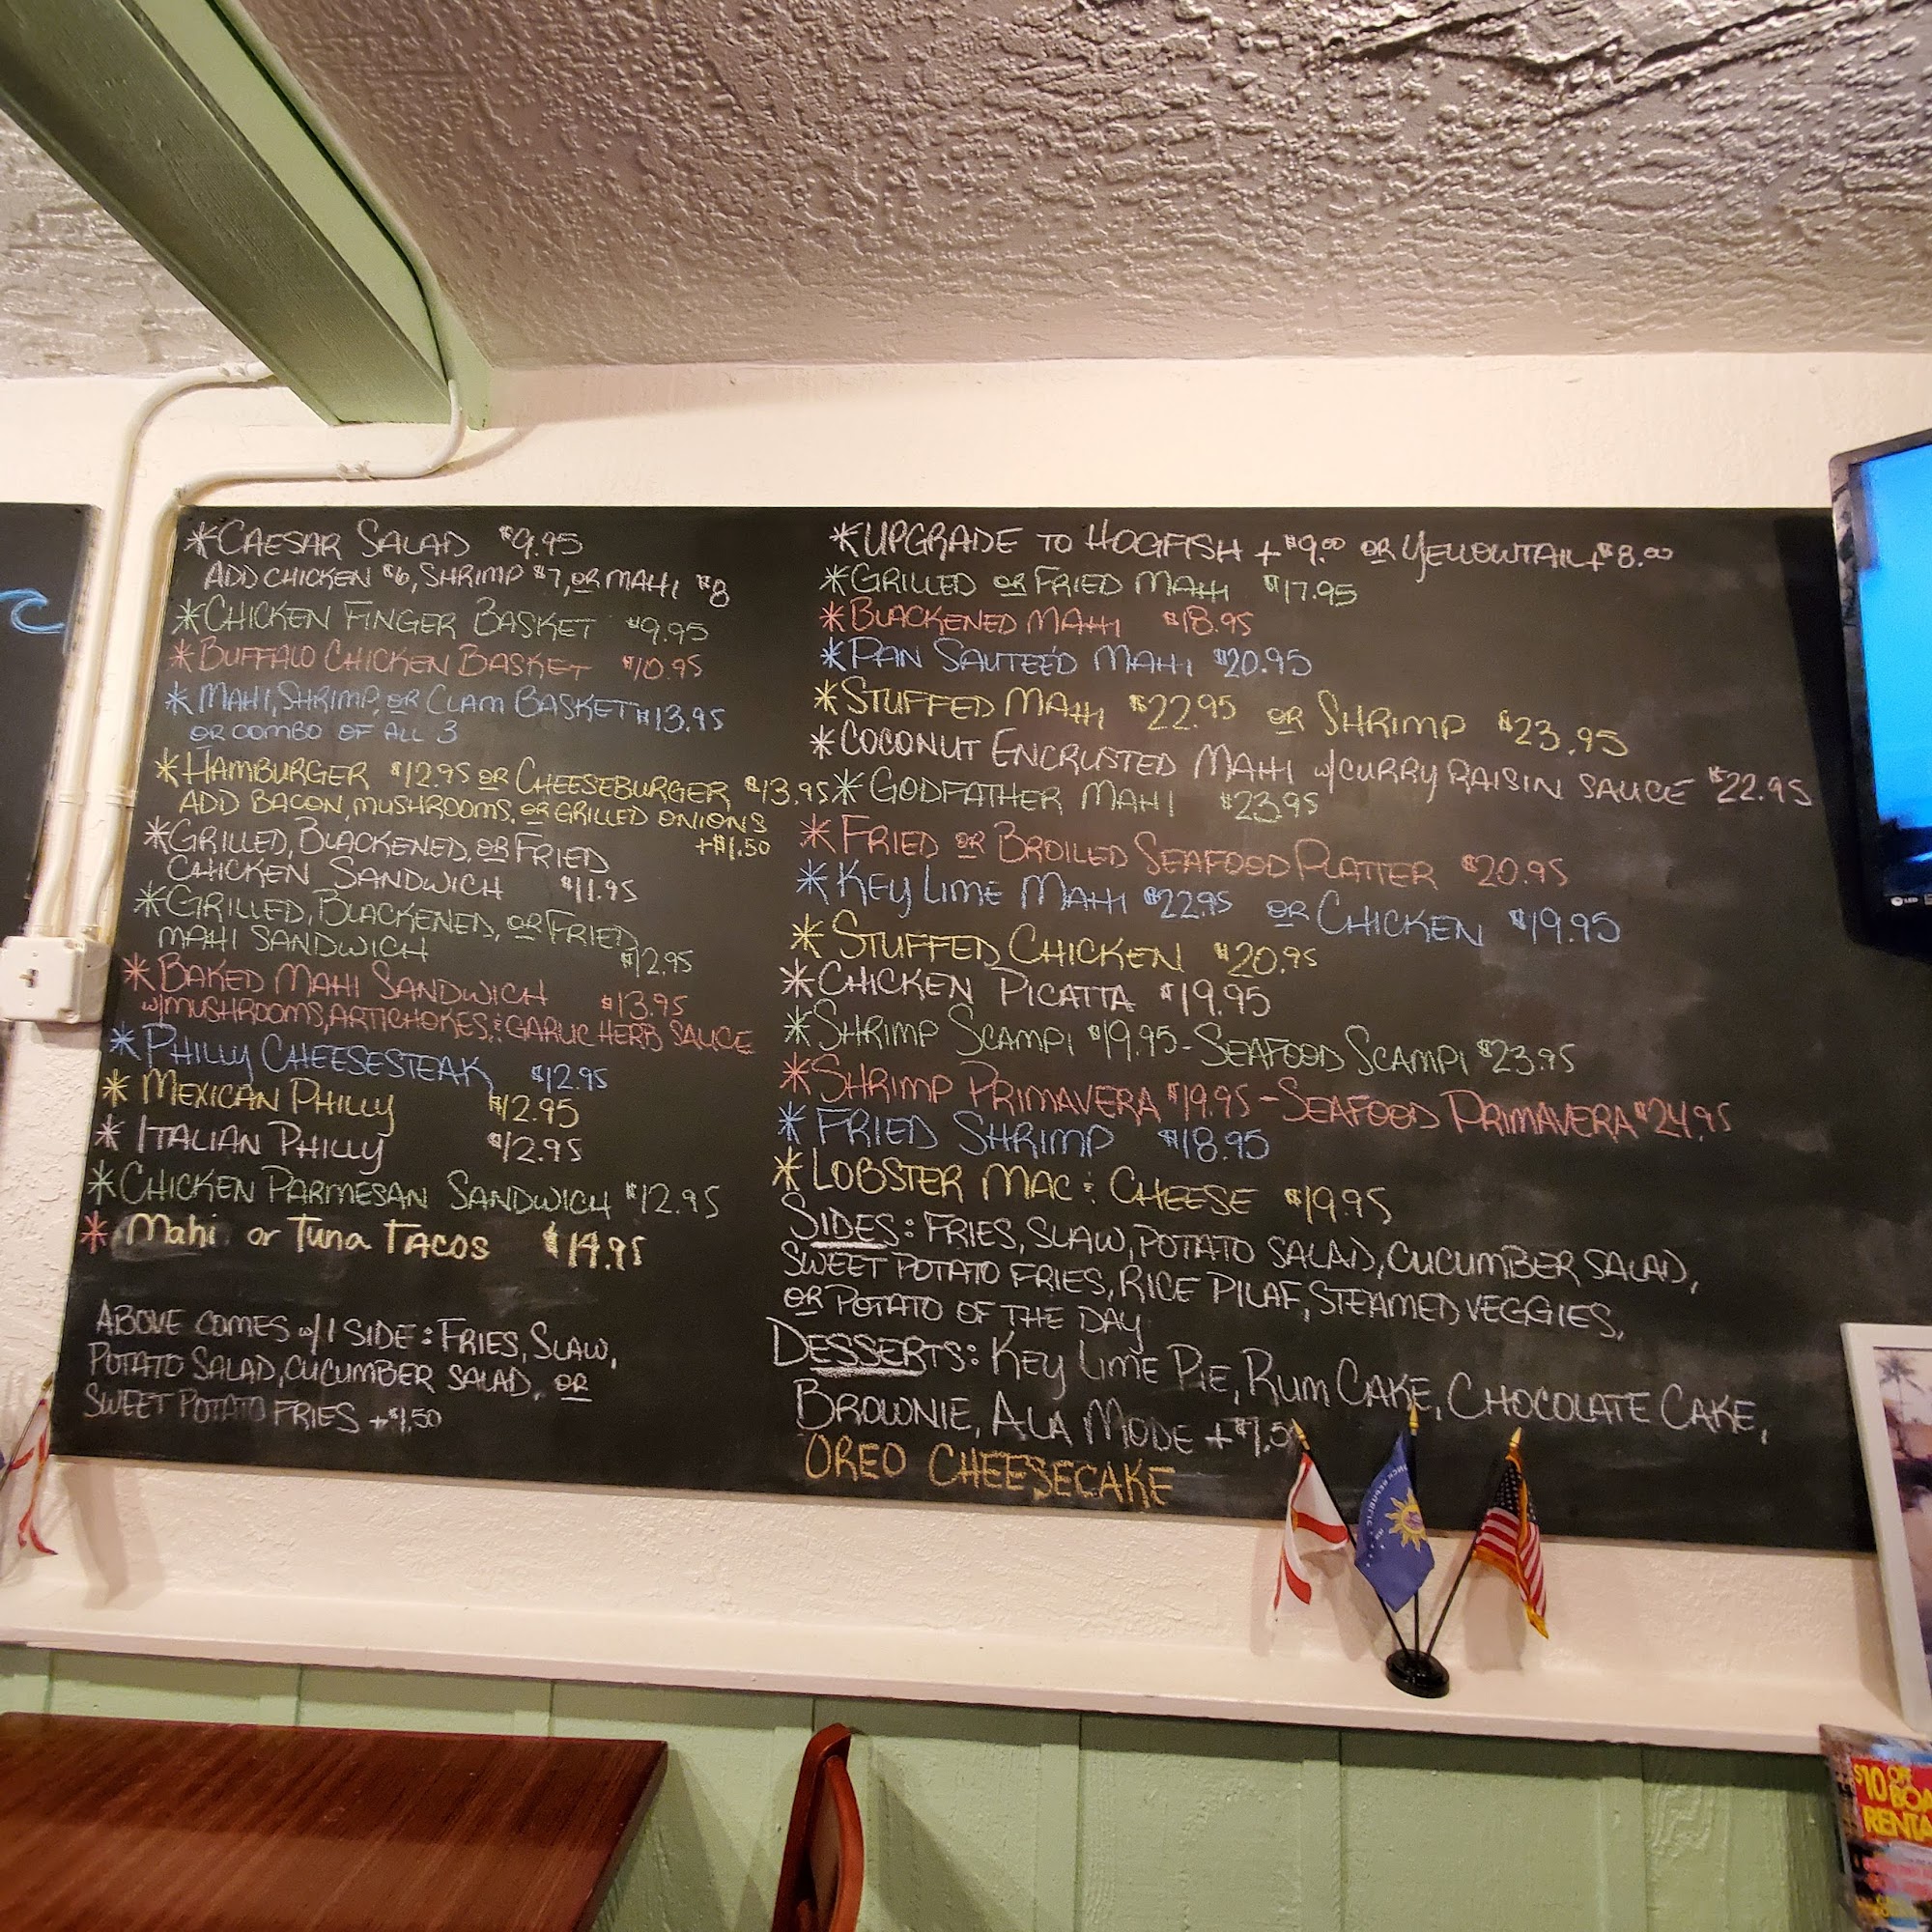 *CAESAR SALAD $9.95
ADD CHICKEN $6, SHRIMP $7, OR MAHI $8
*CHICKEN FINGER BASKET $9.95
*BUFFALO CHICKEN BASKET $10.95
*MAHI, SHRIMP, OR CLAM BASKET $13.95
OR COMBO OF ALL 3
*HAMBURGER $12.95 OR CHEESEBURGER $13.95
ADD BACON, MUSHROOMS, OR GRILLED ONIONS
+$1.50
*GRILLED, BLACKENED, OR FRIED
CHICKEN SANDWICH $11.95
*GRILLED, BLACKENED, OR FRIED
MAHI SANDWICH $12.95
*BAKED MAHI SANDWICH $13.95
w/MUSHROOMS, ARTICHOKES, & GARLIC HERB SAUCE
*PHILLY CHEESESTEAK $12.95
*MEXICAN PHILLY $12.95
*ITALIAN PHILLY $12.95
*CHICKEN PARMESAN SANDWICH $12.95
*Mahi or Tuna TACOS $14.95
ABOVE COMES w/1 SIDE: FRIES, SLAW,
POTATO SALAD, CUCUMBER SALAD, OR
SWEET POTATO FRIES +$1.50
*UPGRADE TO HOGFISH +$9.00 OR YELLOWTAIL +$8.00
*GRILLED OR FRIED MAHI $17.95
*BLACKENED MAHI $18.95
*PAN SAUTEE'D MAHI $20.95
*STUFFED MAHI $22.95 OR SHRIMP $23.95
*COCONUT ENCRUSTED MAHI w/CURRY RAISIN SAUCE $22.95
*GODFATHER MAHI $23.95
*FRIED OR BROILED SEAFOOD PLATTER $20.95
*KEY LIME MAHI $22.95 OR CHICKEN $19.95
*STUFFED CHICKEN $20.95
*CHICKEN PICATTA $19.95
*SHRIMP SCAMPI $19.95 - SEAFOOD SCAMPI $23.95
*SHRIMP PRIMAVERA $19.95 - SEAFOOD PRIMAVERA $24.95
*FRIED SHRIMP $18.95
*LOBSTER MAC & CHEESE $19.95
SIDES: FRIES, SLAW, POTATO SALAD, CUCUMBER SALAD,
SWEET POTATO FRIES, RICE PILAF, STEAMED VEGGIES,
OR POTATO OF THE DAY
DESSERTS: KEY LIME PIE, RUM CAKE, CHOCOLATE CAKE,
BROWNIE, ALA MODE
OREO CHEESECAKE
REPUBLIC
$10 OFF